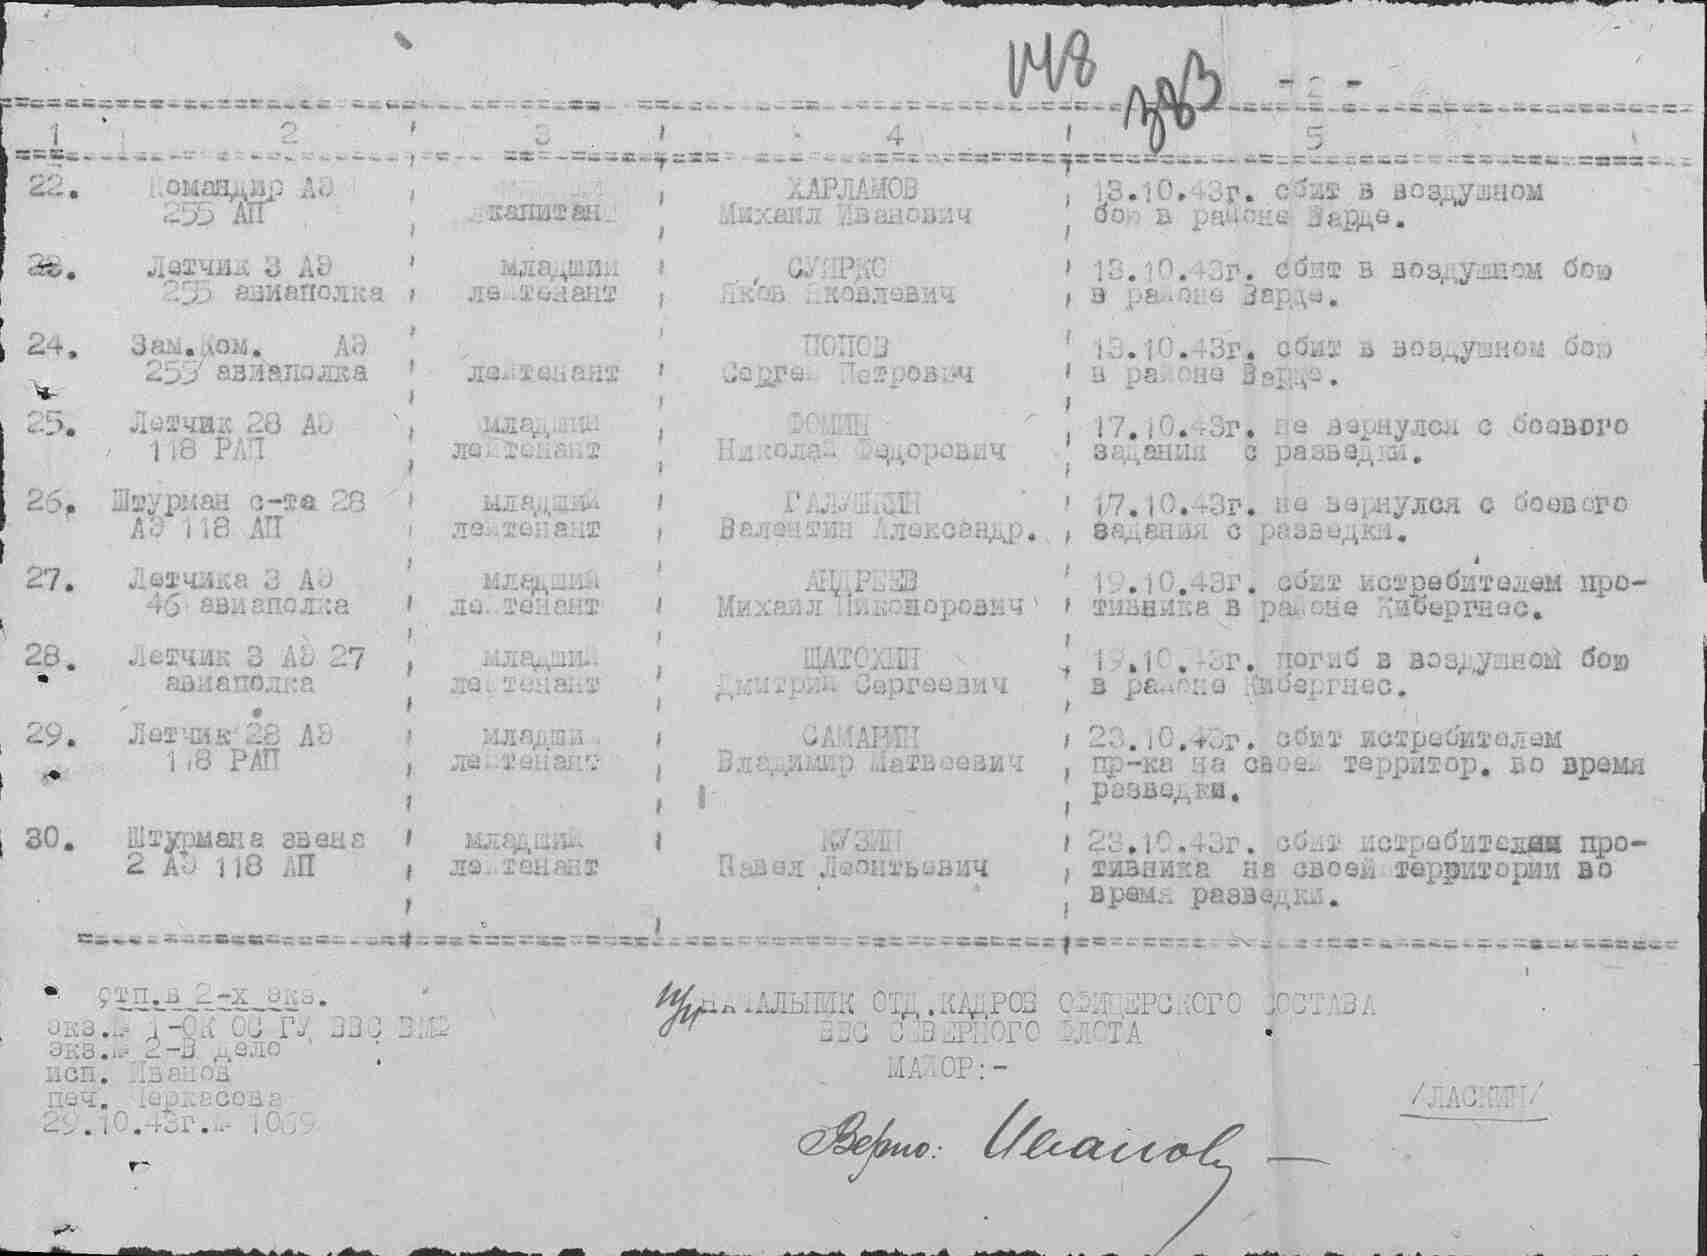 148
383
- 2 -
1 2 3 4 5
22. Командир АЭ ХАРЛАМОВ 13.10.43г. сбит в воздушном
255 АП капитан Михаил Иванович бою в районе Варде.
23. Летчик 3 АЭ младший СУЯРКО 13.10.43г. сбит в воздушном бою
255 авиаполка лейтенант Яков Яковлевич в районе Варде.
24. Зам.Ком. АЭ ПОПОВ 13.10.43г. сбит в воздушном бою
255 авиаполка лейтенант Сергей Петрович в районе Варде.
25. Летчик 28 АЭ младший ФОМИН 17.10.43г. не вернулся с боевого
118 РАП лейтенант Николай Федорович задания с разведки.
26. Штурман с-та 28 младший ГАЛУШКИН 17.10.43г. не вернулся с боевого
АЭ 118 АП лейтенант Валентин Александр. задания с разведки.
27. Летчика 3 АЭ младший АНДРЕЕВ 19.10.43г. сбит истребителем про-
46 авиаполка лейтенант Михаил Никонорович тивника в районе Кибергнес.
28. Летчик 3 АЭ 27 младший ШАТОХИН 19.10.43г. погиб в воздушном бою
авиаполка лейтенант Дмитрий Сергеевич в районе Кибергнес.
29. Летчик 28 АЭ младший САМАРИН 23.10.43г. сбит истребителем
118 РАП лейтенант Владимир Матвеевич пр-ка на своей территор. во время
разведки.
30. Штурмана звена младший КУЗИН 23.10.43г. сбит истребителем про-
2 АЭ 118 АП лейтенант Павел Леонтьевич тивника на своей территории во
время разведки.
отп.в 2-х экз.
экз.№ 1-ОК ОС ГУ ВВС ВМФ
экз.№ 2-В дело
исп. Иванов
печ. Черкасова
29.10.43г.№ 1069
НАЧАЛЬНИК ОТД.КАДРОВ ОФИЦЕРСКОГО СОСТАВА
ВВС СЕВЕРНОГО ФЛОТА
МАЙОР:-
/ЛАСКИН/
Верно: Иванов